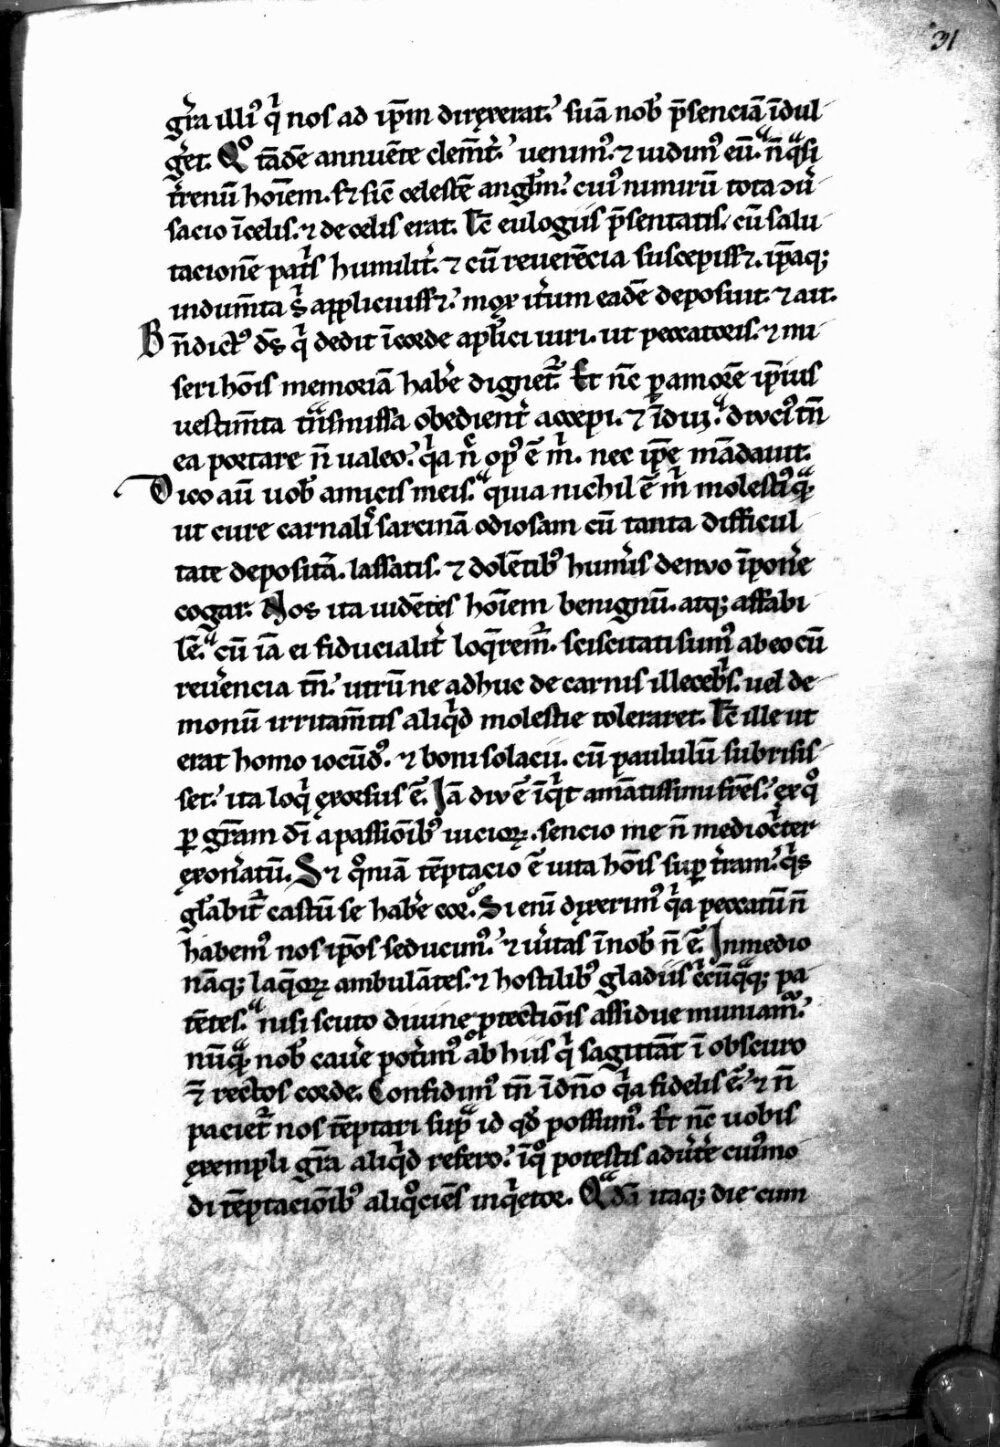 31
gr̄a illi᷒ q̇ nos ad ip̄m direxerat.' suā nob̄ p̄senciā īdul-
g̓et. Qͦ tādē annuēte clem̄t̓.' uenim᷒ ⁊ uidim᷒ eū. n̄ qͣsi
t̓renū hoīem. s; sic̄ celestē angl̄m.' cui᷒ nimirū tota ꝯu̓-
sacio ī celis. ⁊ de celis erat. Hic̄ eulogiis p̄sentatis. cū salu-
tacione pat̓s humilit̓. ⁊ cū reuerēcia suscepiss;. ip̄aq;
indum̄ta s̓ applicuiss;.' mox it̓um eadē deposuit. ⁊ ait.
Bn̄dict᷒ ds̄ q̇ dedit ī corde apl̄ici uiri. ut peccatoris. ⁊ mi-
seri hoīs memoriā hab̓e dignet᷑. Et nc̄ ꝑ amorē ip̄ius
uestim̄ta tn̄smissa obedient̓ accepi. ⁊ īdui. diuci᷒ tn̄
ea portare n̄ ualeo.' q̇a n̄ op᷒ ē m̓. nec ip̄e mādauit.
Dico aū uob̄ amicis meis. quia nichil ē m̓ molesti᷒ qͣꝫ
ut cure carnalis̓ sarcinā odiosam cū tanta difficul-
tate depositā. lassatis. ⁊ dolētib᷒ hum̓is denuo īpon̓e
cogar. Nos ita uidētes hoīem benignū. atq; affabi-
lē. cū iā ei fiducialit̓ loq̄rem᷑. sciscitati sum᷒ ab eo cū
reu̓encia tn̄.' utrū ne adhuc de carnis illeceb̓s. uel de-
monū irritam̄tis aliq̇d molestie toleraret. Hic̄ ille ut
erat homo iocūd᷒. ⁊ boni solacii. cū paululū subrisis-
set.' ita loq̇ exorsus ē. Iā diu ē īq̇t amātissimi fr̄es.' ex qͦ
ꝑ gr̄am dī a passioīb᷒ uicioꝝ. sencio me n̄ mediocr̓ter
exon̓atū. S; qm̄iā tēptacio ē uita hoīs suꝑ t̓ram.' q̇s
gl̄abit᷑ castū se hab̓e cor. Si eni dixerim᷒ q̇a peccatū n̄
habem᷒ nos ip̄os seducim᷒.' ⁊ u̓itas ī nob̄ n̄ ē. In medio
nāq; laq̄oꝝ ambulātes. ⁊ hostilib᷒ gladiis c̓cūqͣq; pa-
tētes. nisi scuto diuine ꝓtectiois̄ assidue muniam᷑.'
nūqͣꝫ nob̄ cau̓e pot̓im᷒ ab hiis q̇ sagittāt ī obscuro
⁊̄ rectos corde. Confidim᷒ tn̄ ī dn̄o q̇a fidelis ē.' ⁊ n̄
paciet᷑ nos tēptari supͣ id qd̄ possum᷒. Et nc̄ uobis
exempli gr̄a aliq̇d refero.' ī qͦ potestis adu̓t̓e cui᷒mo-
di tēptacioīb᷒ aliqͦciēs inq̇etor. Qͣdā itaq; die cum